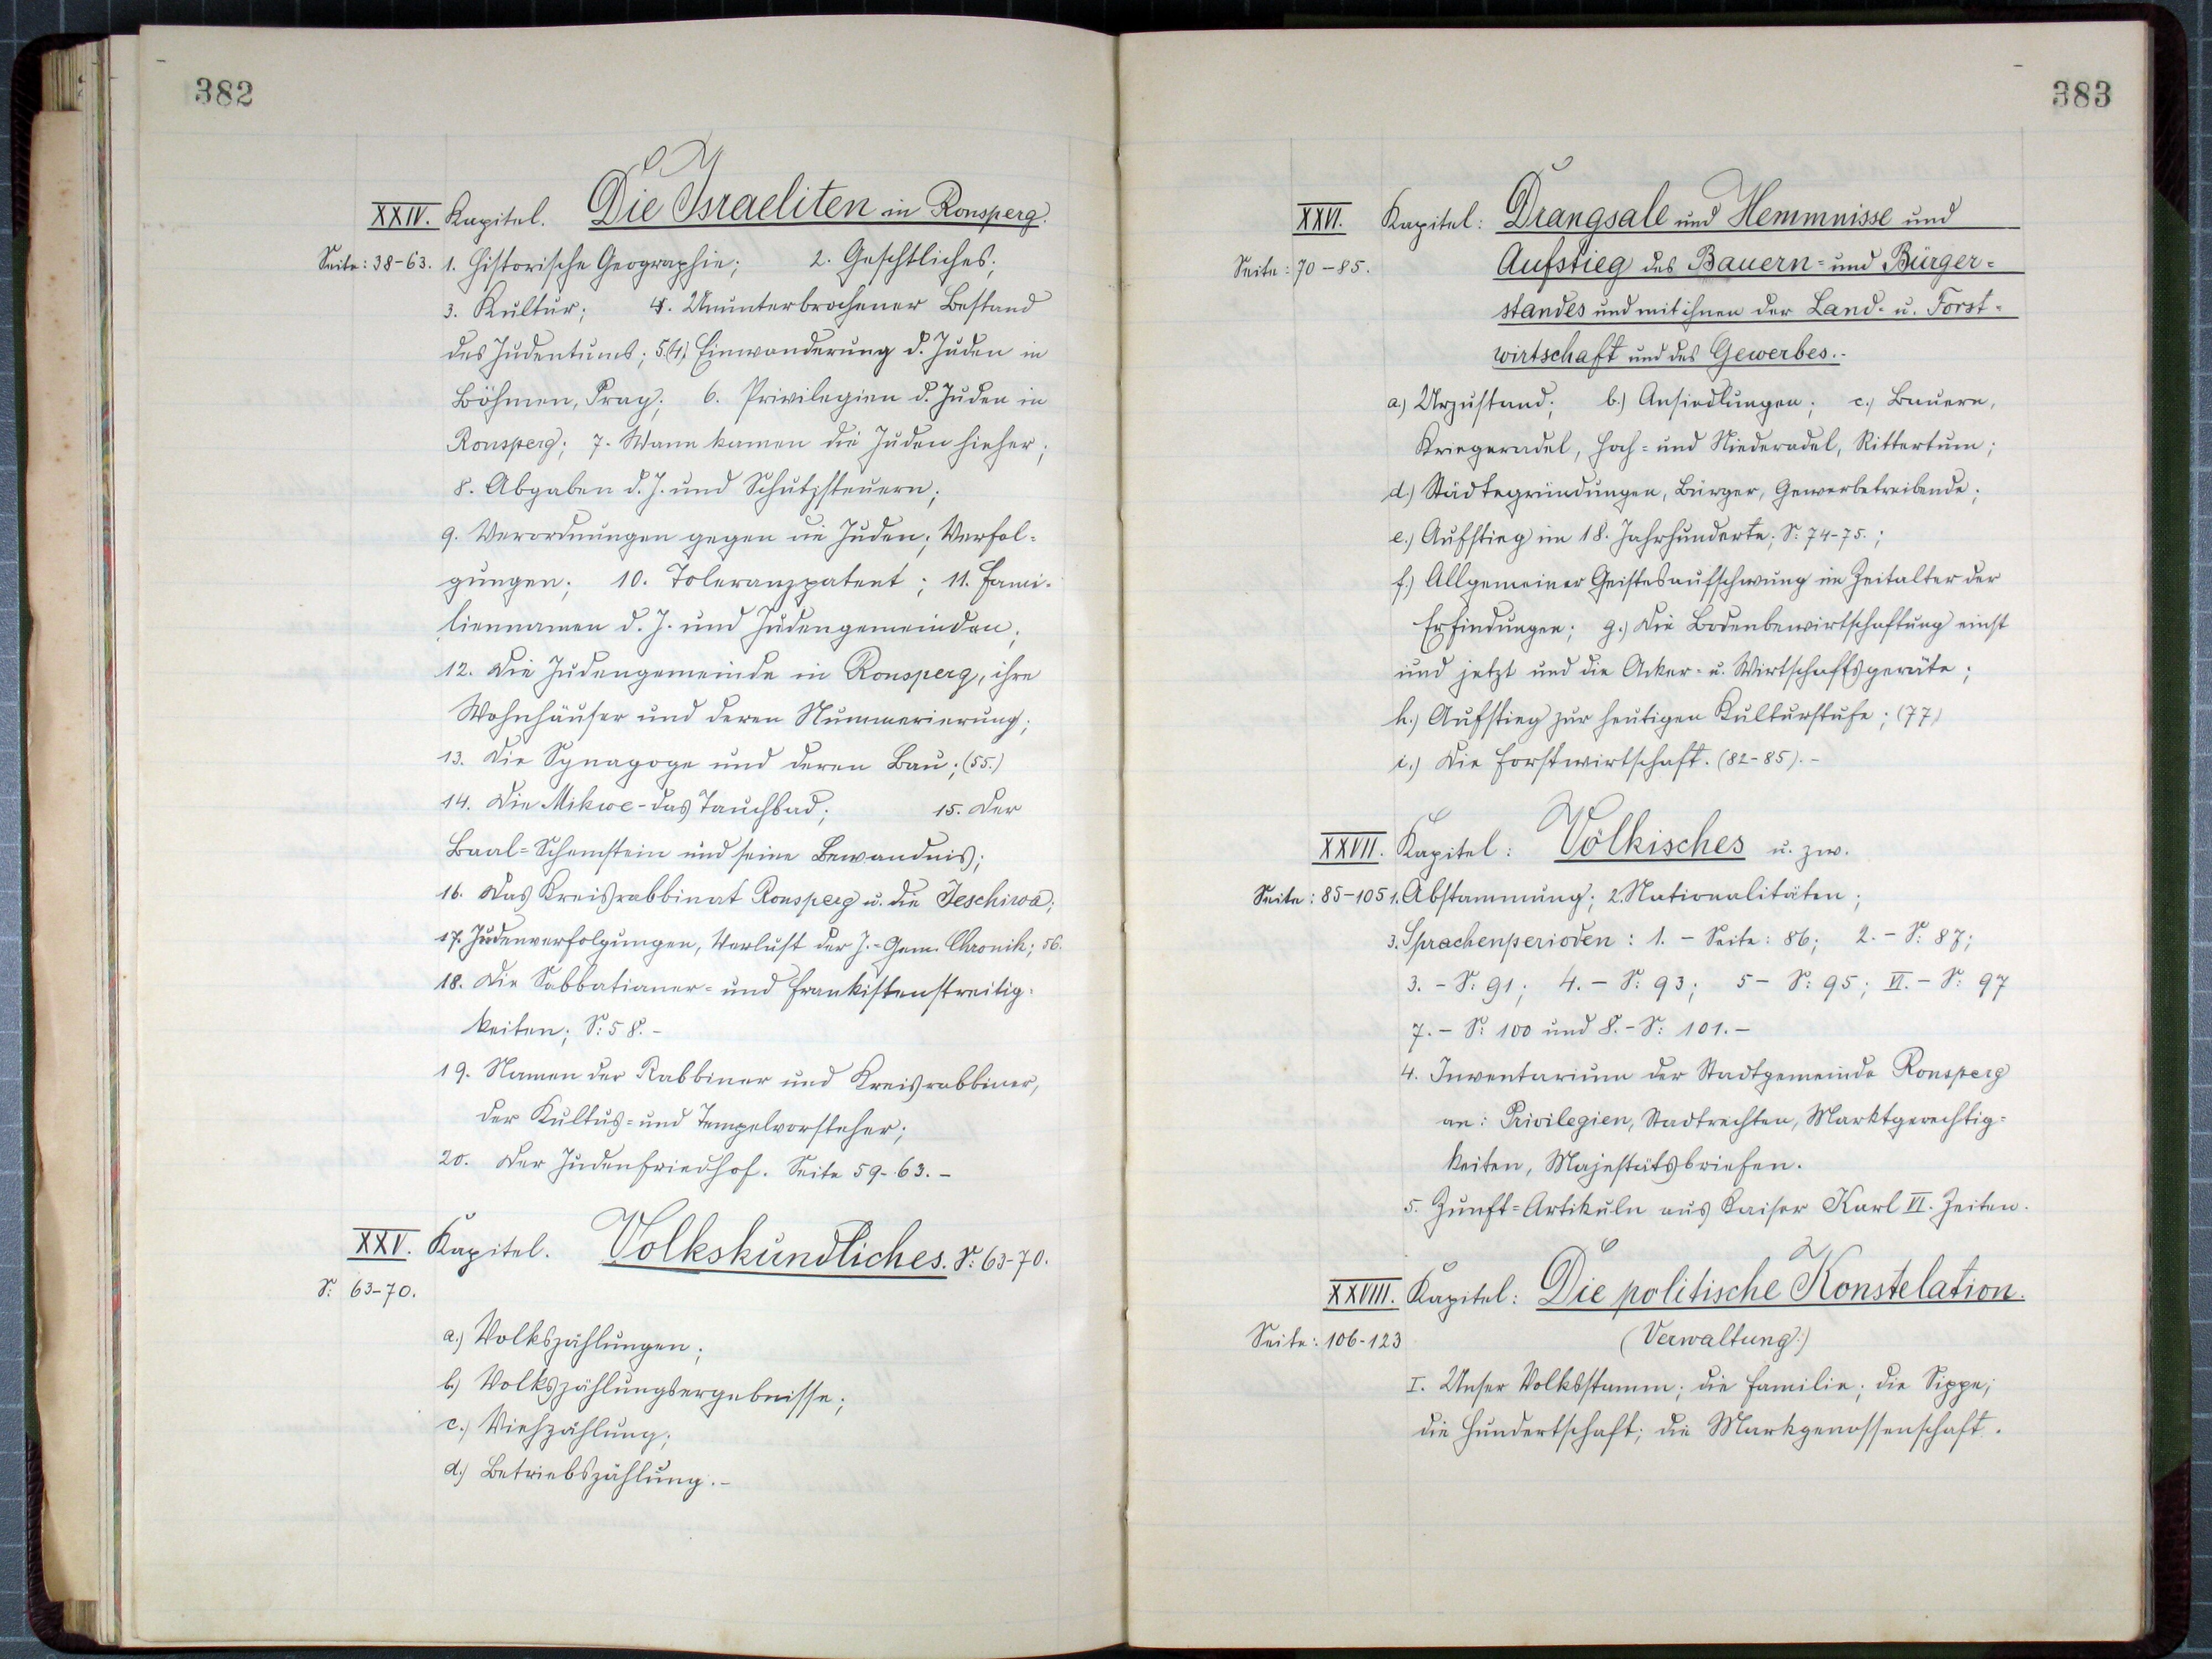 382
XXIV. Kapitel. Die Israeliten in Ronsperg.
Seite: 38-63. 1. Historische Geographie; 2. Geschtliches;
3. Kultur; 4. Ununterbrochener Bestand
des Judentums; 5.(4.) Einwanderung d. Juden in
Böhmen, Prag; 6. Privilegien d. Juden in
Ronsperg; 7. Wann kamen die Juden hieher;
8. Abgaben d. J. und Schutzsteuern;
9. Verordnungen gegen die Juden; Verfol-
gungen; 10. Toleranzpatent; 11. Fami-
liennamen d. J. und Judengemeinden;
12. Die Judengemeinde in Ronsperg, ihre
Wohnhäuser und deren Nummerierung;
13. Die Synagoge und deren Bau; (55.)
14. Die Mikwe - das Tauchbad; 15. Der
Baal=Schemstein und seine Bewandnis;
16. Das Kreisrabbinat Ronsperg u. die Jeschiwa;
17. Judenverfolgungen, Verlust der J.-Gem. Chronik; 56.
18. Die Sabbatianer= und Frankistenstreitig-
keiten; S: 58.-
19. Namen der Rabbiner und Kreisrabbiner,
der Kultus= und Tempelvorsteher;
20. Der Judenfriedhof. Seite 59-63.-
XXV. Kapitel. Volkskundliches. S: 63-70.
S: 63-70.
a.) Volkszählungen;
b.) Volkszählungsergebnisse;
c.) Viehzählung;
d.) Betriebszählung.-
383
XXVI. Kapitel: Drangsale und Hemmnisse und
Seite: 70-85. Aufstieg des Bauern= und Bürger=
standes und mit ihnen der Land- u. Forst=
wirtschaft und des Gewerbes.-
a.) Urzustand; b.) Ansiedlungen; c.) Bauern,
Kriegeradel, Hoch= und Niederadel, Rittertum;
d.) Städtegründungen, Bürger, Gewerbetreibende;
e.) Aufstieg im 18. Jahrhunderte; S: 74-75.;
f.) Allgemeiner Geistesaufschwung im Zeitalter der
Erfindungen; g.) Die Bodenbewirtschaftung einst
und jetzt und die Acker- u. Wirtschaftsgeräte;
h.) Aufstieg zur heutigen Kulturstufe; (77)
i.) Die Forstwirtschaft. (82-85).-
XXVII. Kapitel: Völkisches u. zw.
Seite: 85-105 1. Abstammung; 2. Nationalitäten;
3. Sprachenperioden: 1. - Seite: 86; 2. - S: 87;
3. - S: 91; 4. - S: 93; 5 - S: 95; VI. - S: 97
7. - S: 100 und 8. - S: 101.-
4. Inventarium der Stadtgemeinde Ronsperg
an: Privilegien, Stadtrechten, Marktgerechtig=
keiten, Majestätsbriefen.
5. Zunft=Artikuln aus Kaiser Karl VI. Zeiten.
XXVIII. Kapitel: Die politische Konstelation.
Seite: 106-123 (Verwaltung:)
I. Unser Volksstamm; die Familie; die Sippe;
die Hundertschaft; die Markgenossenschaft.